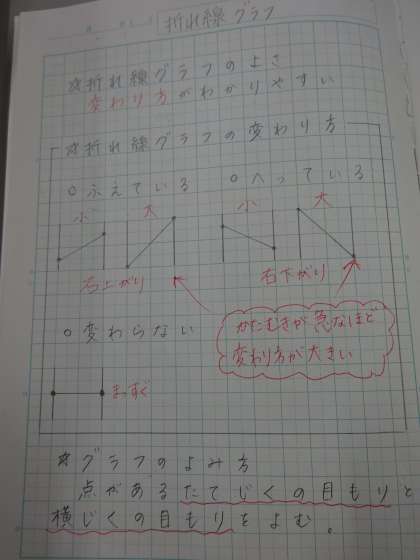 折れ線グラフ
☆折れ線グラフのよさ
変わり方がわかりやすい
☆折れ線グラフの変わり方
○ふえている ○へっている
小 大 小 大
右上がり 右下がり
かたむきが急なほど
変わり方が大きい
○変わらない
まっすぐ
☆グラフのよみ方
点があるたてじくの目もりと
横じくの目もりをよむ。